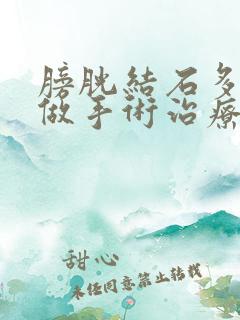 膀胱結石多
做手術治療
甜心
未经同意禁止转载